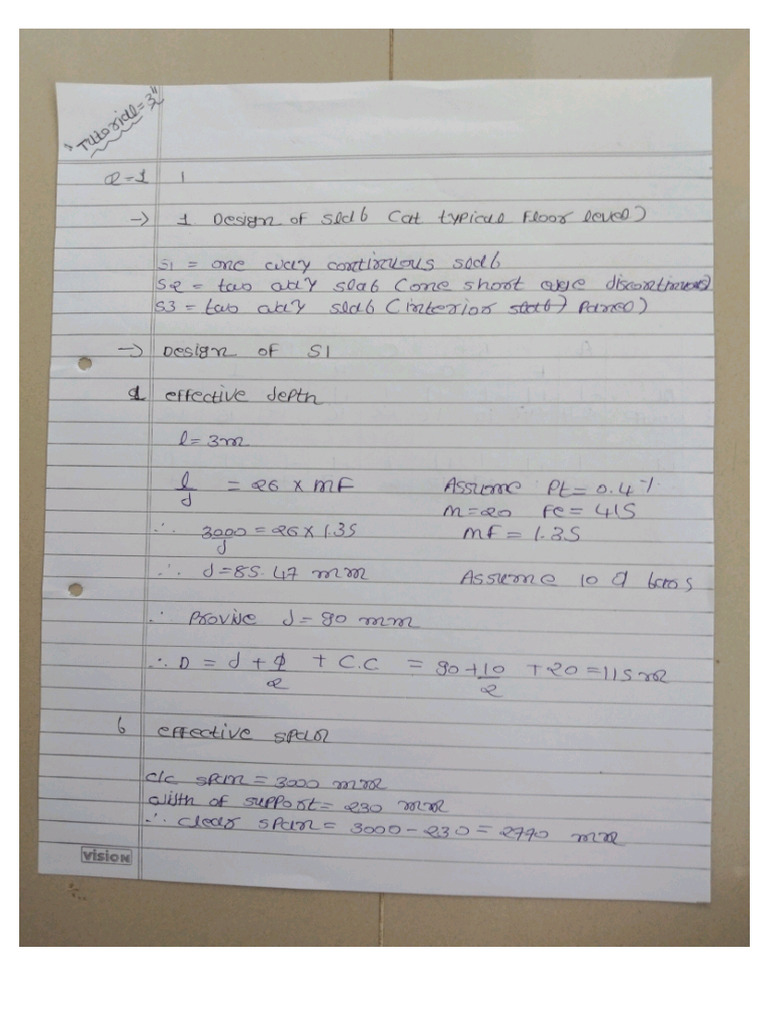 "Tutorial=3"
Q-1 1
→ 1 Design of slab (at typical Floor level)
S1 = one way continuous slab
S2 = two way slab (one short edge discontinuous)
S3 = two way slab (interior slab) Panel)
→ Design of S1
a effective depth
l=3m
l/d = 26 × MF Assume Pt=0.4%
M=20 Fe=415
∴ 3000/d = 26×1.35 MF=1.35
∴ d=85.47 mm Assume 10 φ bars
∴ Provide d=90 mm
∴ D = d + φ/2 + C.C = 90+10/2 +20=115mm
b effective span
c/c span = 3000 mm
width of support= 230 mm
∴ clear span = 3000-230 = 2770 mm
VISION